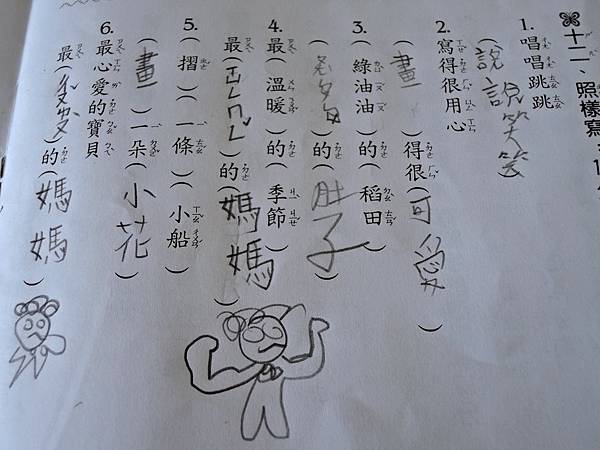 十二、照樣寫
1. 唱唱跳跳
(說說笑笑
2. 寫得很用心
(畫)得很(可愛)
3. (綠油油)的(稻田)
( )的(肚子)
4. 最(溫暖)的(季節)
最( )的(媽媽)
5. (摺)(一條)(小船)
(畫)(一朵)(小花)
6. 最心愛的寶貝
最( )的(媽媽)